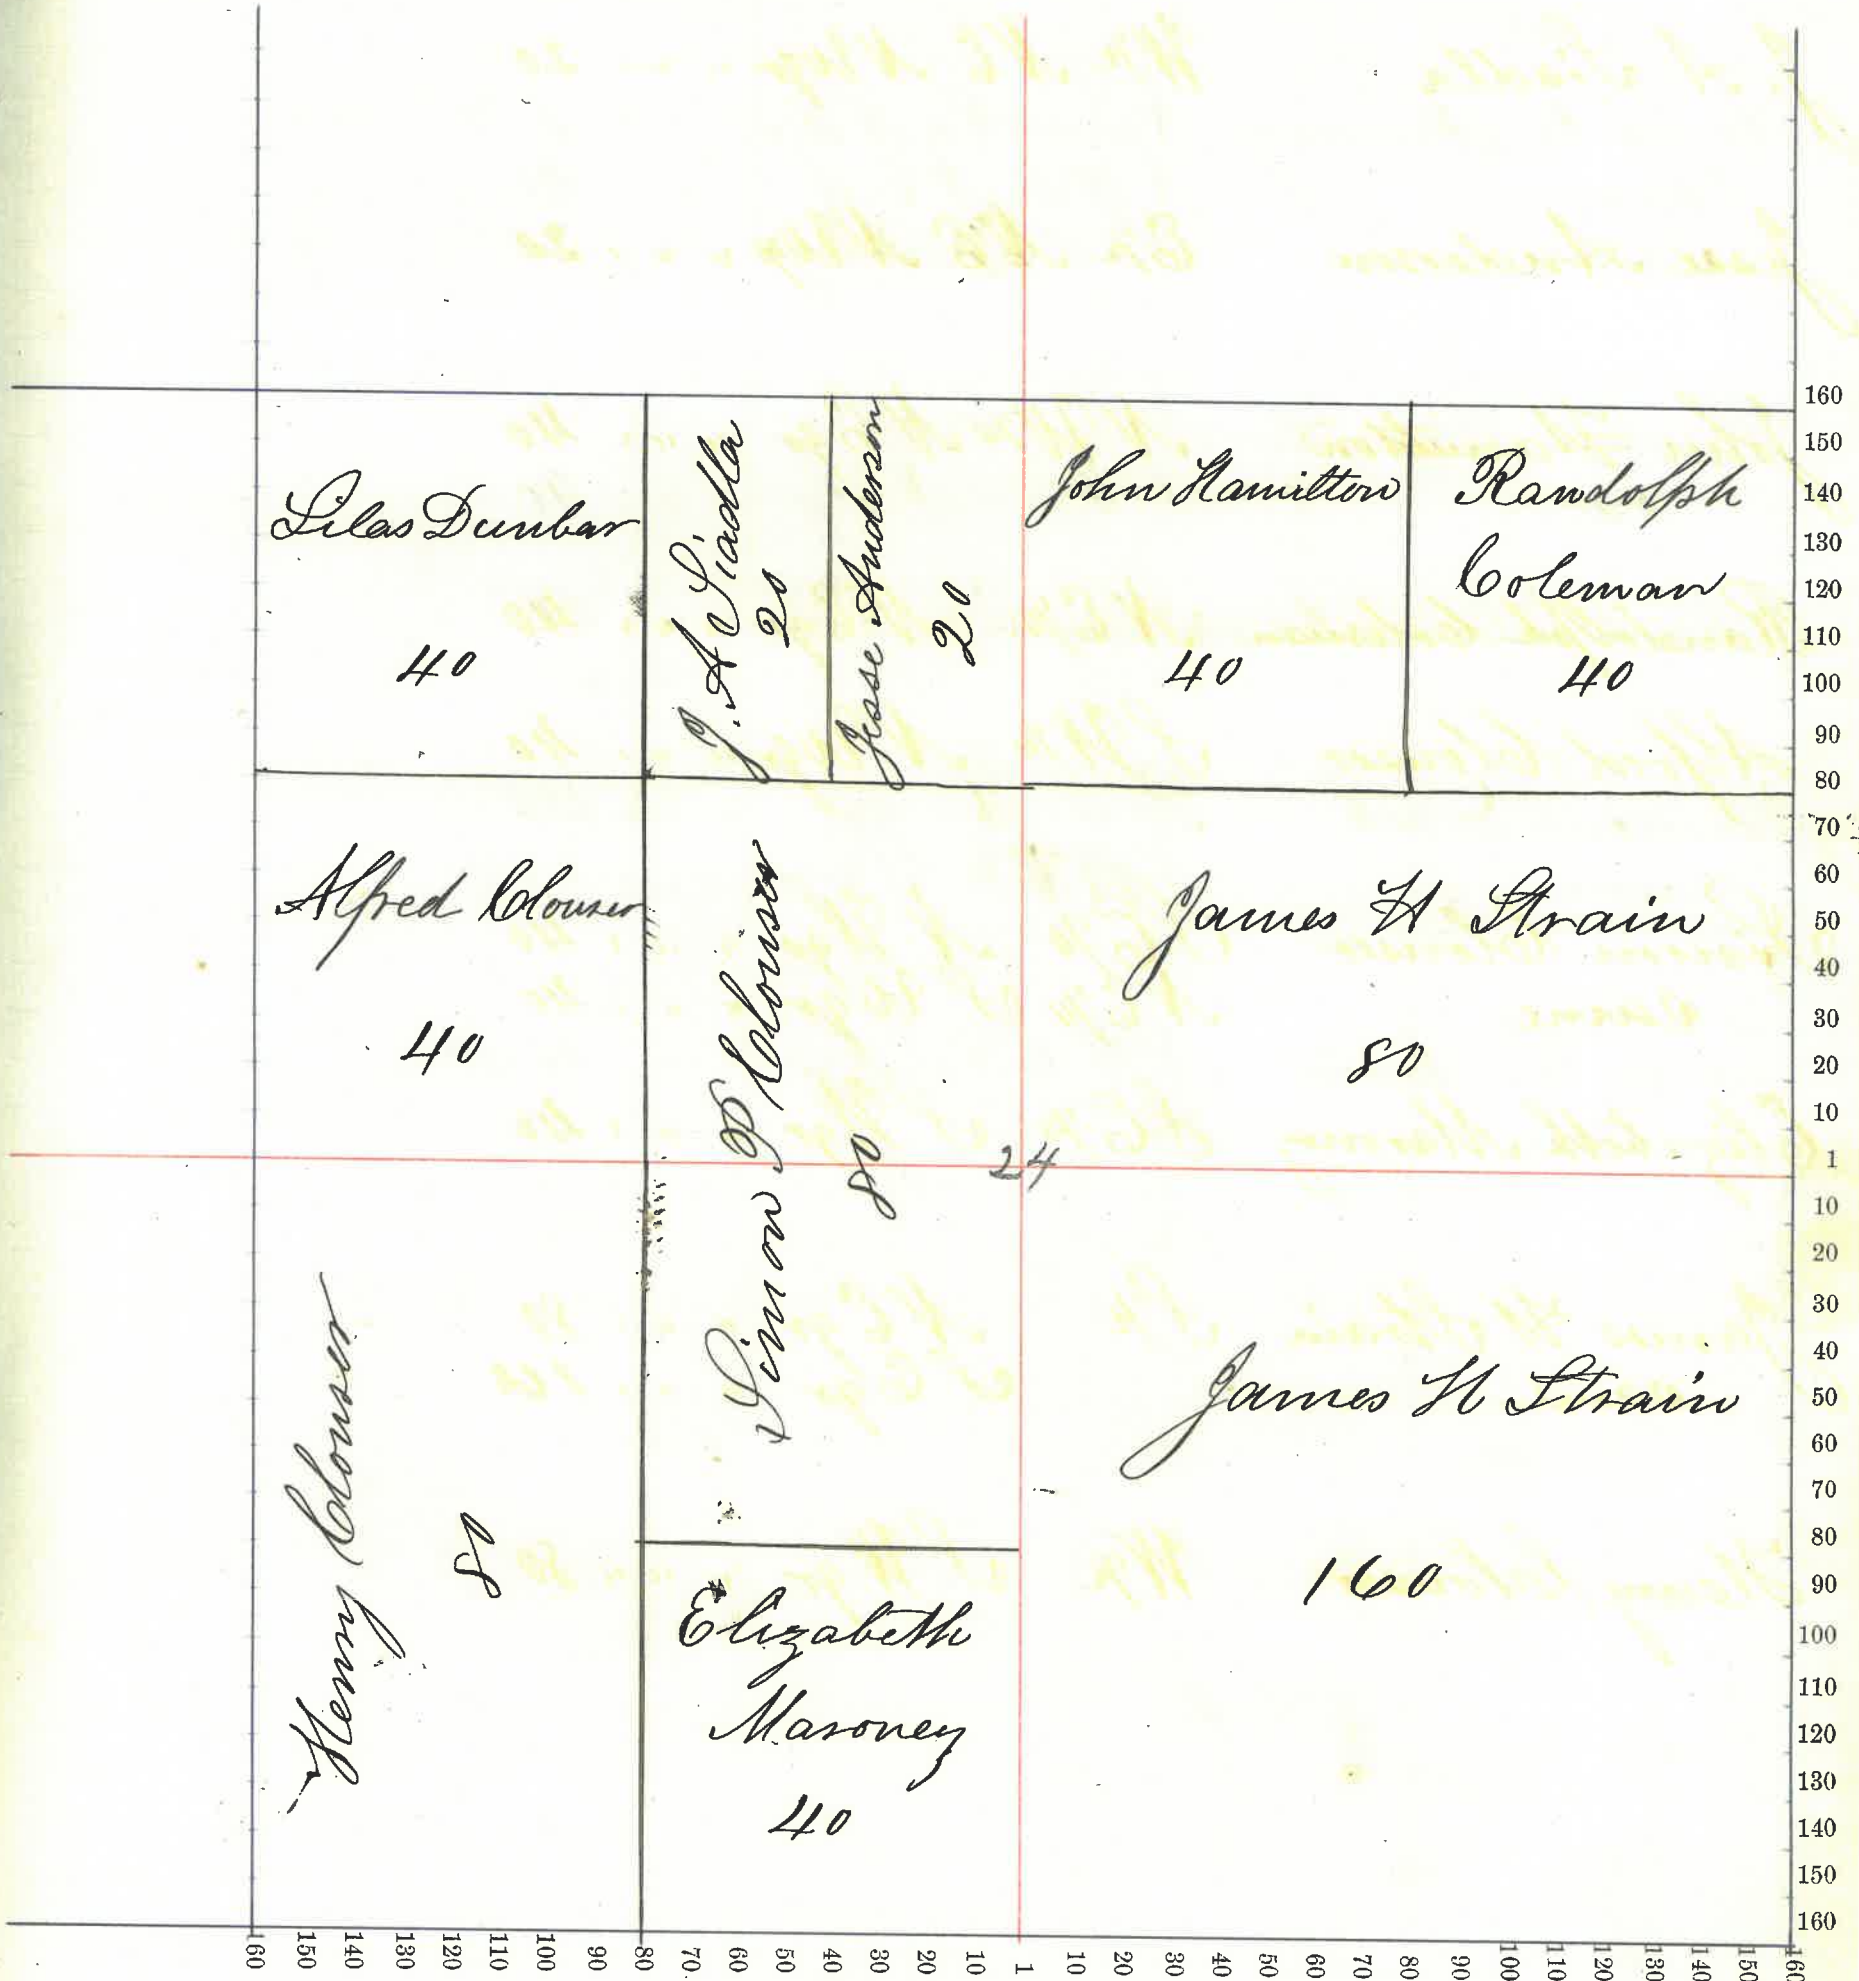 Silas Dunbar
40
J. A Siadla
20
Jesse Anderson
20
John Hamilton
40
Randolph
Coleman
40
Alfred Clouser
40
Simon P Clouser
80
James H Strain
80
24
Henry Clouser
80
Elizabeth
Maroney
40
James H Strain
160
160
150
140
130
120
110
100
90
80
70
60
50
40
30
20
10
1
10
20
30
40
50
60
70
80
90
100
110
120
130
140
150
160
60
150
140
130
120
110
100
90
80
70
60
50
40
30
20
10
1
10
20
30
40
50
60
70
80
90
100
110
120
130
140
150
160